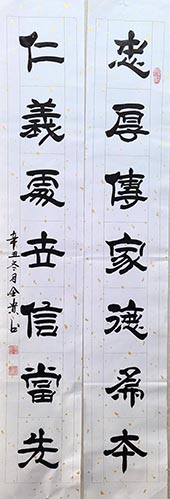 忠厚傳家德為本
仁義處世信當先
辛丑冬月金貴書